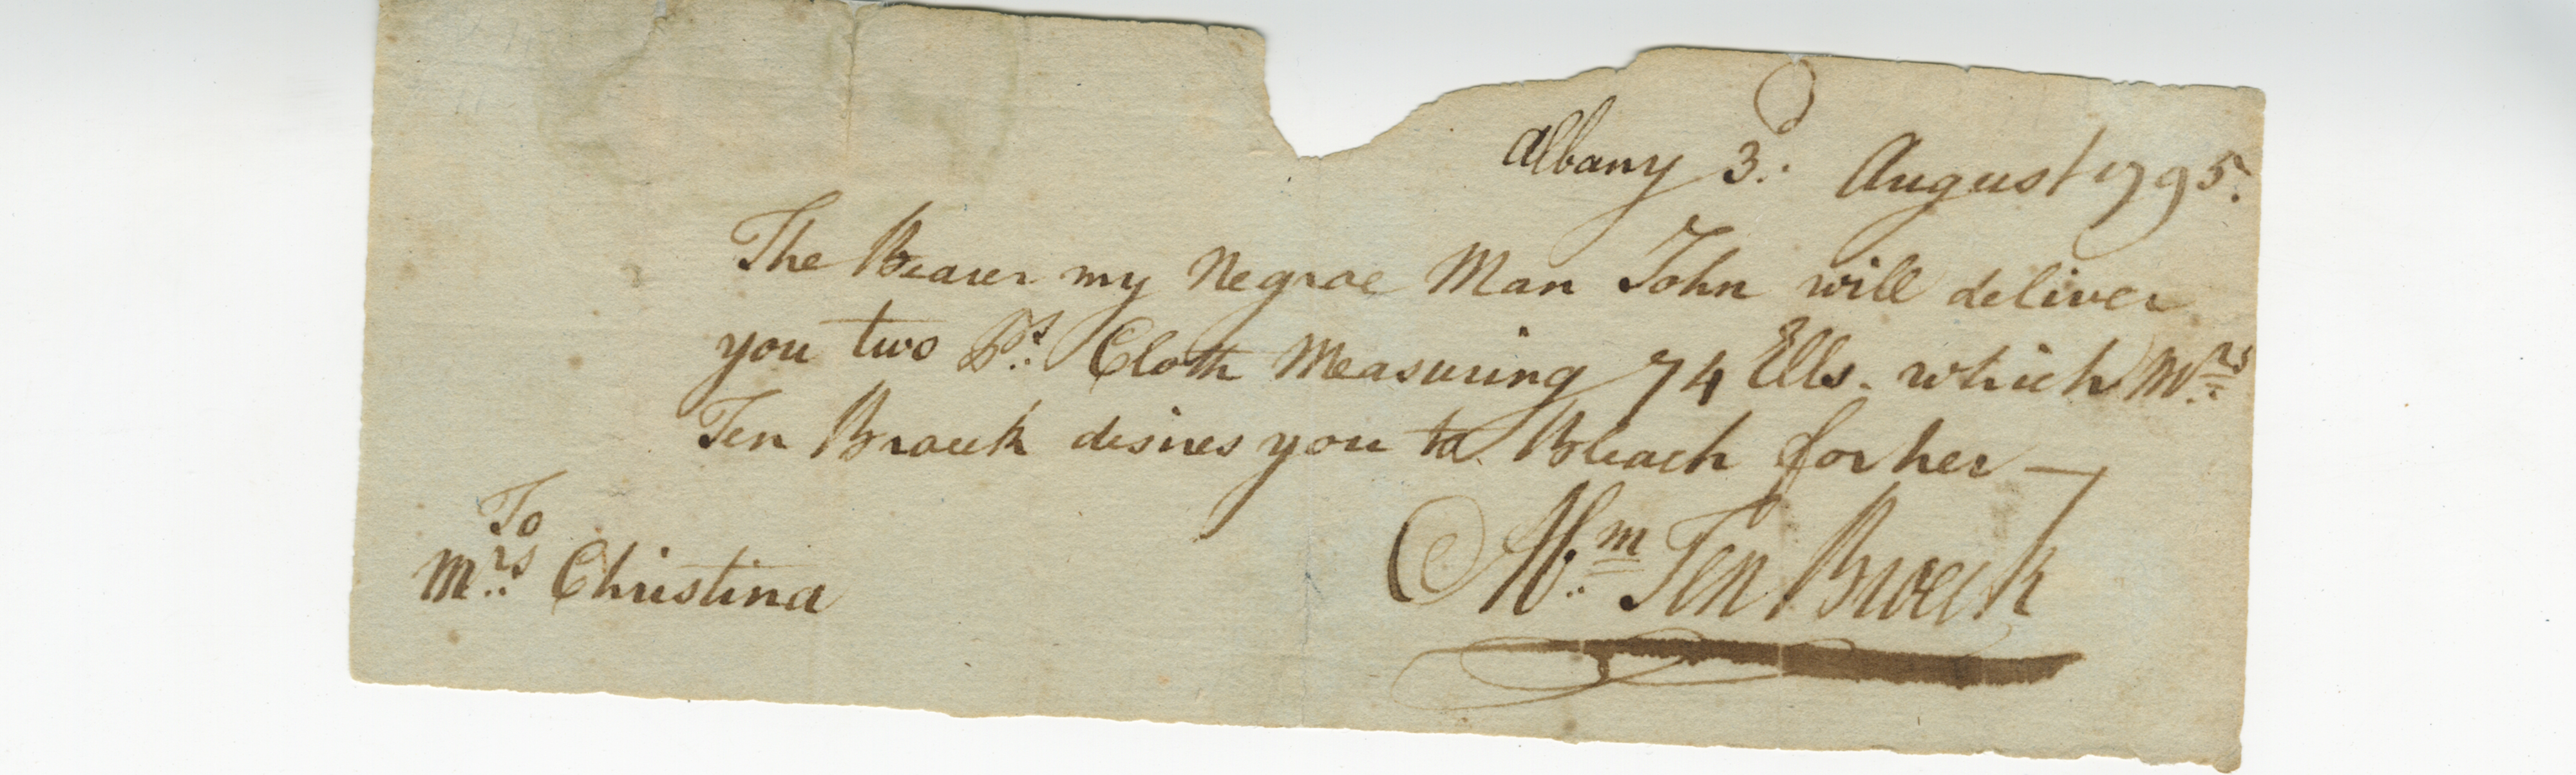 Albany 3d. August 1795.
The Bearer my Negroe Man John will deliver
you two Ps. Cloth Measuring 74 Ells. which Mrs.
Ten Broeck desires you to Bleach for her —
To
Mrs. Christina
Abm. Ten Broeck